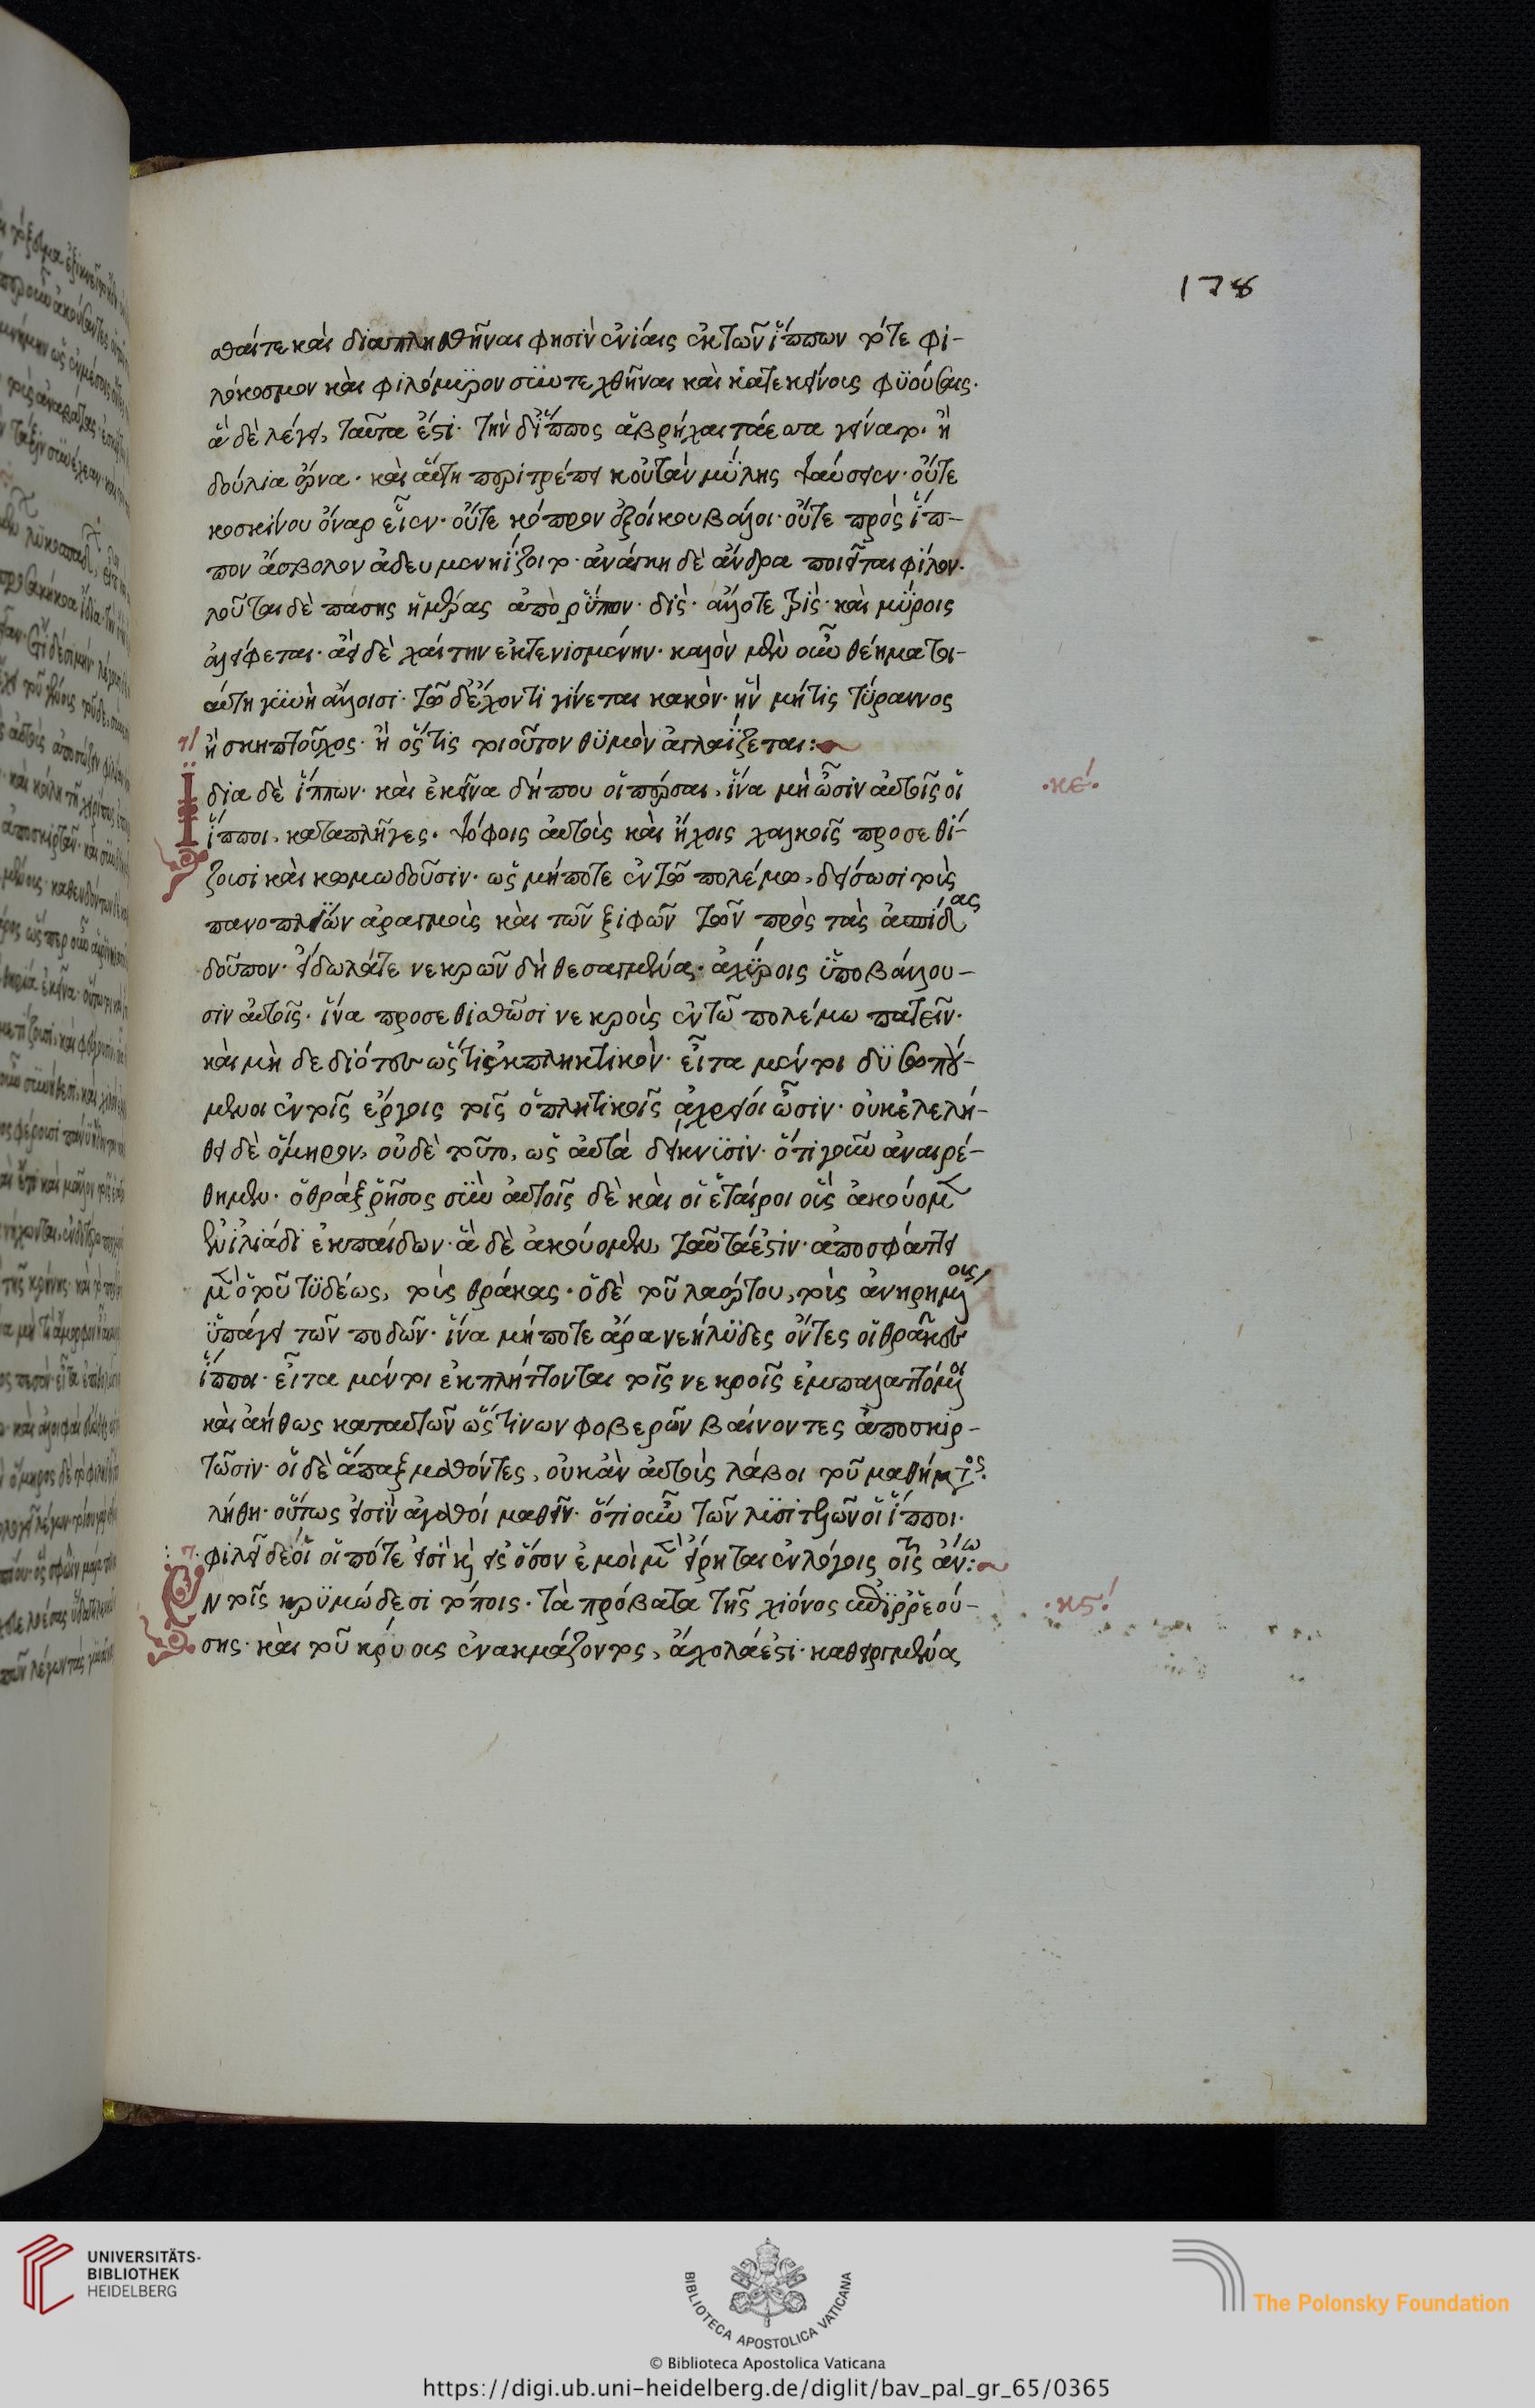 178
σθαί τε καὶ διαπλησθῆναι φησὶν ἐνίαις ἐκ τῶν ἵππων τό τε φι-
λόκοσμον καὶ φιλόμυρον συντεχθῆναι καὶ κατεκείνοις φυούσαις.
ἃ δὲ λέγει, ταῦτα ἐστί· τὴν δ' ἵππος ἁβρὴ χαιτάεσσα γείνατο· ἣ
δούλια ἔργα· καὶ ἄτη περιτρέπει κοὔτ' ἂν μύλης ψαύσειεν· οὔτε
κοσκίνου ὄναρ εἶεν· οὔτε κόπρον ἐξοίκου βάλοι· οὔτε πρὸς ἵπ-
πον ἄσβολον ἀλευμενη ἵζοιτο· ἀνάγκη δὲ ἄνδρα ποιεῖται φίλον·
λοῦται δὲ πάσης ἡμέρας ἀπὸ ῥύπον· δὶς· ἄλλοτε τρὶς· καὶ μύροις
ἀλείφεται· ἀεὶ δὲ χαίτην ἐκτενισμένην· καλὸν μὲν οὖν θέημα τοι-
αύτη γυνὴ ἄλλοισι· τῷ δ' ἔχοντι γίνεται κακόν· ἢν μή τις τύραννος
ἢ σκηπτοῦχος· ἢ ὅστις τοιοῦτον θυμὸν ἀγλαΐζεται:
Ἴδια δὲ ἵππων· καὶ ἐκεῖνα δήπου οἱ πέρσαι, ἵνα μὴ ὦσιν αὐτοῖς οἱ ·κε·
ἵπποι, καταπλῆγες· ψόφοις αὐτοὺς καὶ ἤχοις χαλκοῖς προσεθί-
ζουσι καὶ κρωμωδοῦσιν· ὡς μήποτε ἐν τῷ πολέμῳ, δείσωσι τοὺς
πανοπλιῶν ἀραγμοὺς καὶ τῶν ξιφῶν τῶν πρὸς τὰς ἀσπίδας
δοῦπον· εἴδωλά τε νεκρῶν δὴ θεσαγμένα· ἀχύροις ὑποβάλλου-
σιν αὐτοῖς· ἵνα προσεθισθῶσι νεκροὺς ἐν τῷ πολέμω πατεῖν·
καὶ μὴ δεδιότες ὥς τι ἐκπληκτικὸν· εἶτα μέντοι δυσωπού-
μενοι ἐν τοῖς ἔργοις τοῖς ὁπλητικοῖς ἀχρεῖοι ὦσιν· οὐκ ἐλελή-
θει δὲ ὅμηρον, οὐδὲ τοῦτο, ὡς αὐτὰ δείκνυσιν· ὅτι γοῦν ἀναιρέ-
θημεν· ὁ θρὰξ ῥῆσος σὺν αὐτοῖς δὲ καὶ οἱ ἑταίροι οἷς ἀκούομεν
ἐν ἰλιάδι ἐκ παίδων· ἃ δὲ ἀκούομεν, ταῦτά ἐστιν· ἀποσφάττει
μὲν ὁ τοῦ τυδέως, τοὺς θράκας· ὁ δὲ τοῦ λαέρτου, τοὺς ἀνηρημένους
ὑπάγει τῶν ποδῶν· ἵνα μήποτε ἄρα νεήλυδες ὄντες οἱ θράκες
ἵπποι· εἶτα μέντοι ἐκπλήττονται τοῖς νεκροῖς ἐμπαλαττόμενοι
καὶ ἀήθως κατ αὐτῶν ὥς τινων φοβερῶν βαίνοντες ἀποσκιρ-
τῶσιν· οἱ δὲ ἅπαξ μαθόντες, οὐκ ἂν αὐτοὺς λάβοι τοῦ μαθήματος·
λήθη· οὕτως εἰσὶν ἀγαθοί μαθεῖν· ὅτι οὖν τῶν λυσιτελῶν οἱ ἵπποι·
φιλεῖ δέ οἱ οἱ πότε εἰσὶ καὶ εἰς ὅσον ἐμοὶ μὲν εἴρηται ἐν λόγοις τοῖς ἀνω:
Ἐν τοῖς κρυμώδεσι τόποις· τὰ πρόβατα τῆς χιόνος ἐπιρρεού- ·κϛ·
σης· καὶ τοῦ κρύους ἐνακμάζοντος, ἄχολά ἐστι· καθειργμένα
UNIVERSITÄTS-
BIBLIOTHEK
HEIDELBERG
BIBLIOTECA APOSTOLICA VATICANA
The Polonsky Foundation
© Biblioteca Apostolica Vaticana
https://digi.ub.uni-heidelberg.de/diglit/bav_pal_gr_65/0365